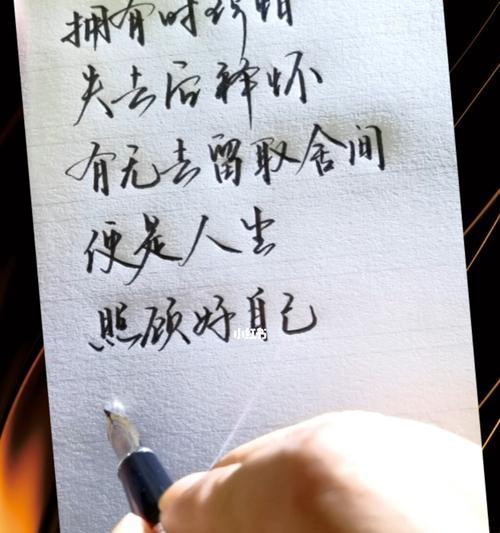 拥有时珍惜
失去后释怀
有无去留取舍间
便是人生
照顾好自己
小红书